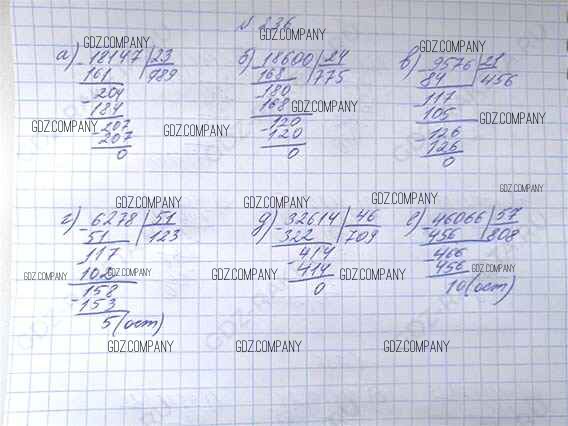 № 236
GDZ.COMPANY GDZ.COMPANY GDZ.COMPANY
а) 18147 | 23
161 | 789
- 204
184
GDZ.COMPANY - 207
207
0
б) 18600 | 24
168 | 775
180
168 GDZ.COMPANY
- 120
120
0
в) - 9576 | 21
84 | 456
- 117
105 GDZ.COMPANY
- 126
126
0
GDZ.COMPANY GDZ.COMPANY GDZ.COMPANY GDZ.COMPANY
г) - 6278 | 51
51 | 123
117
GDZ.COMPANY 102 GDZ.COMPANY
- 158
153
5 (ост)
д) - 32614 | 46
322 | 709
- 414
GDZ.COMPANY 414 GDZ.COMPANY
0
е) - 46066 | 57
456 | 808
- 466
456 GDZ.COMPANY
10 (ост)
GDZ.COMPANY GDZ.COMPANY GDZ.COMPANY